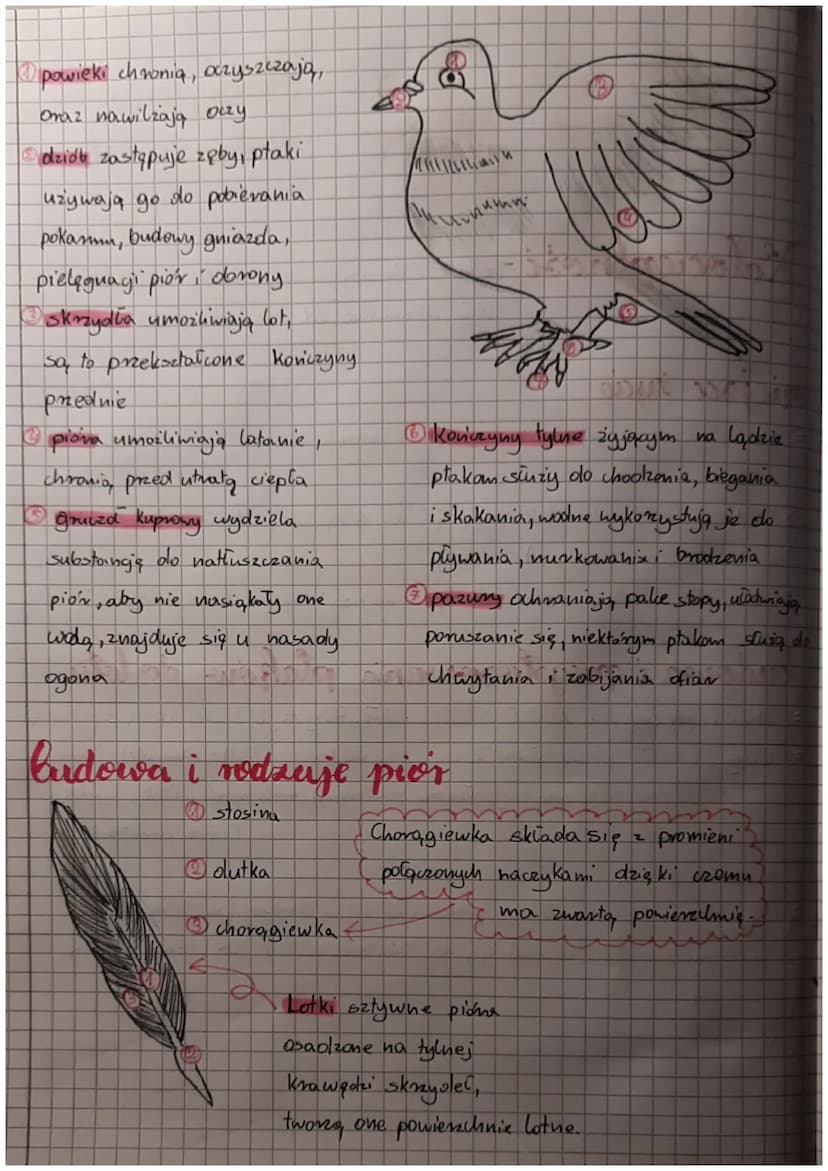 ① powieki chronią, oczyszczają,
oraz nawilżają oczy
② dziób zastępuje zęby, ptaki
używają go do pobierania
pokarmu, budowy gniazda,
pielęgnacji piór i obrony
③ skrzydła umożliwiają lot,
są to przekształcone kończyny
przednie
④ pióra umożliwiają latanie,
chronią przed utratą ciepła
⑤ gruczoł kuprowy wydziela
substancję do natłuszczania
piór, aby nie nasiąkały one
wodą, znajduje się u nasady
ogona
①
②
③
④
⑤
⑥
⑦
⑥ kończyny tylne żyjącym na lądzie
ptakom służy do chodzenia, biegania
i skakania, wodne wykorzystują je do
pływania, nurkowania i brodzenia
⑦ pazury ochraniają palce stopy, ułatwiają
poruszanie się, niektórym ptakom służą do
chwytania i zabijania ofiar
Budowa i rodzaje piór
① stosina
② dutka
③ chorągiewka
Chorągiewka składa się z promieni
połączonych haczykami dzięki czemu
ma zwartą powierzchnię.
①
③
②
Lotki sztywne pióra
osadzone na tylnej
krawędzi skrzydeł,
tworzą one powierzchnie lotne.